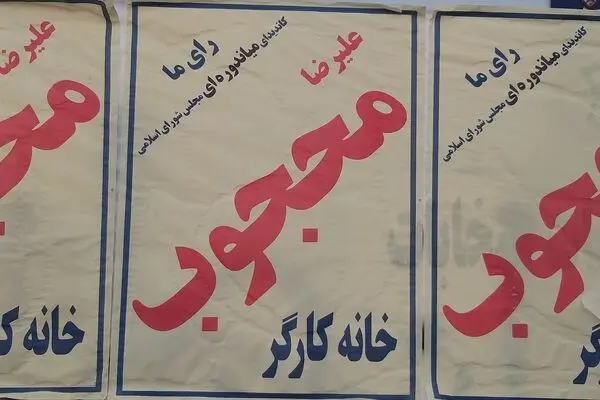 علیرضا
محجوب
رای ما
کاندیدای میاندوره‌ای مجلس شورای اسلامی
علیرضا
محجوب
خانه کارگر
رای ما
کاندیدای میاندوره‌ای مجلس شورای اسلامی
خانه